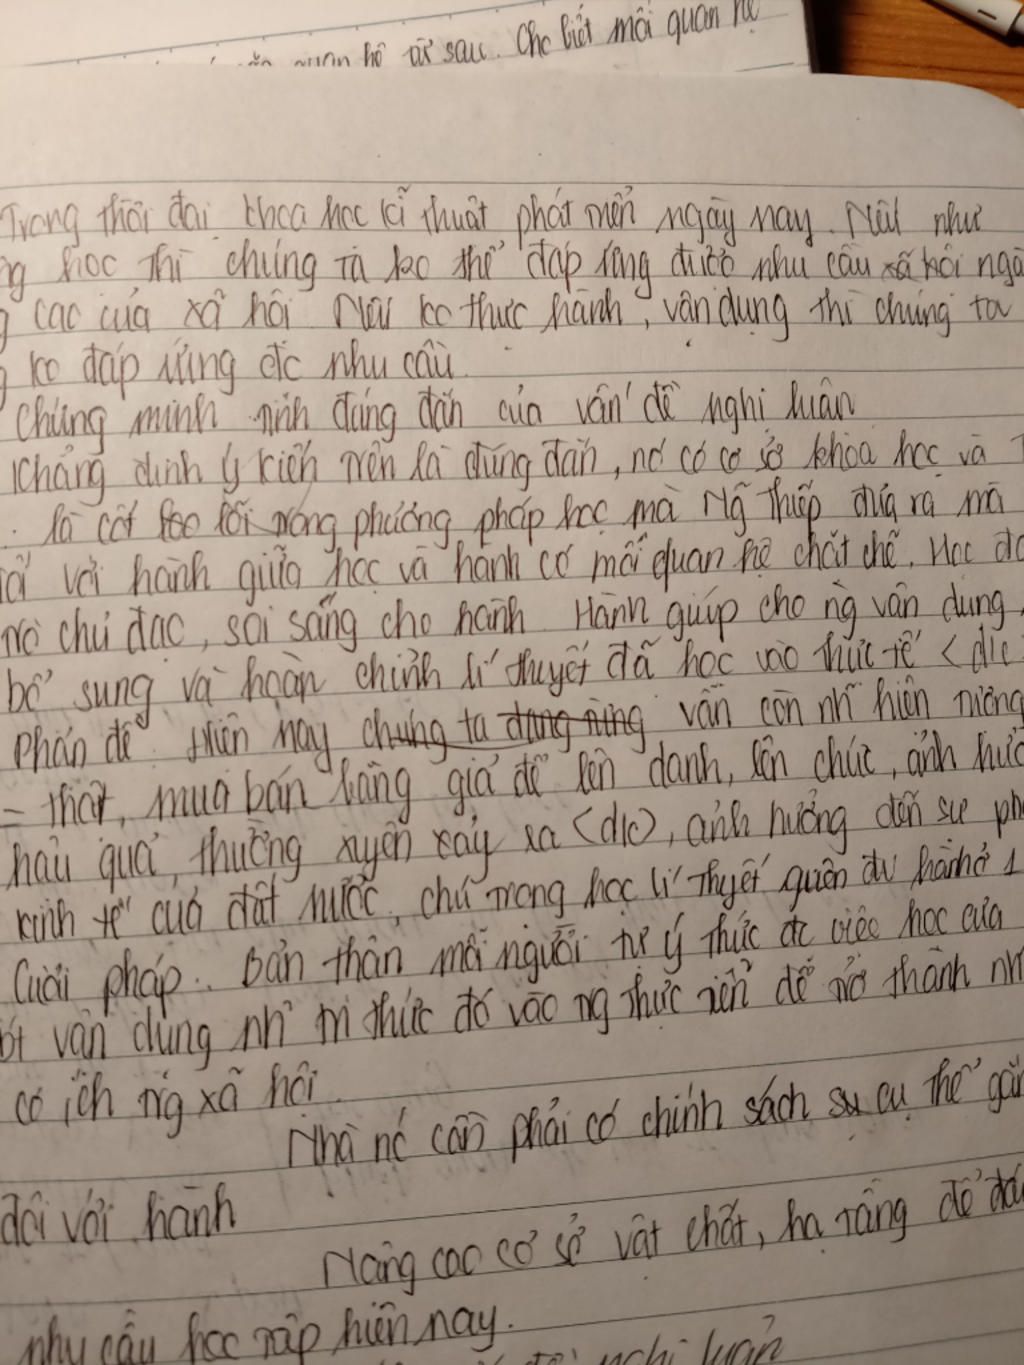 quan hệ từ sau. Cho biết mối quan hệ
Trong thời đại khoa học kĩ thuật phát triển ngày nay. Nếu như
học thì chúng ta ko thể đáp ứng được nhu cầu xã hội
cao của xã hội. Nếu ko thực hành, vận dụng thì chúng ta
ko đáp ứng đc nhu cầu.
Chứng minh tính đúng đắn của vấn đề nghị luận
Khẳng định ý kiến trên là đúng đắn, nó có cơ sở khoa học và
. là cốt lõi trong phương pháp học mà Ng Thiếp đưa ra mà
với hành giữa học và hành có mối quan hệ chặt chẽ. Học
trò chỉ đạo, soi sáng cho hành. Hành giúp cho ng vận dụng,
bổ sung và hoàn chỉnh lí thuyết đã học vào thực tế <d/c
phản đề. Hiện nay chúng ta vẫn còn nh hiện tượng
= thật, mua bán bằng giả để lên danh, lên chức, ảnh
hậu quả, thường xuyên xảy ra <d/c>, ảnh hưởng đến sự
kinh tế của đất nước, chú trọng học lí thuyết quên đi hành ở 1
Giải pháp.. Bản thân mỗi người tự ý thức đc việc học của
vận dụng nh tri thức đó vào ng thực tiễn để trở thành
có ích trg xã hội.
Nhà nc cần phải có chính sách cụ thể
đôi với hành
Nâng cao cơ sở vật chất, hạ tầng để
nhu cầu học tập hiện nay.
nghị luận